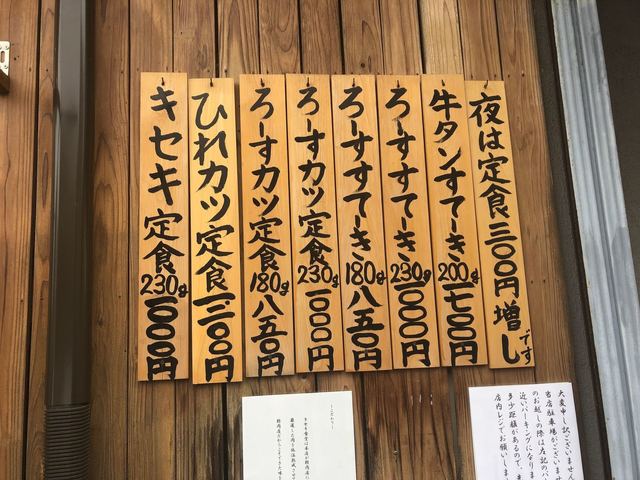 夜は定食三〇〇円増しです
牛タンすてーき200g一七〇〇円
ろーすすてーき230g一〇〇〇円
ろーすすてーき180g八五〇円
ろーすカツ定食230g一〇〇〇円
ろーすカツ定食180g八五〇円
ひれカツ定食一.三〇〇円
キセキ定食230g一〇〇〇円
大変申し訳ございません
当店駐車場がございませ
のお越しの際は左記のパ
近いパーキングになりま
多少距離があるので、
店内レジでお願いしま
～こだわり～